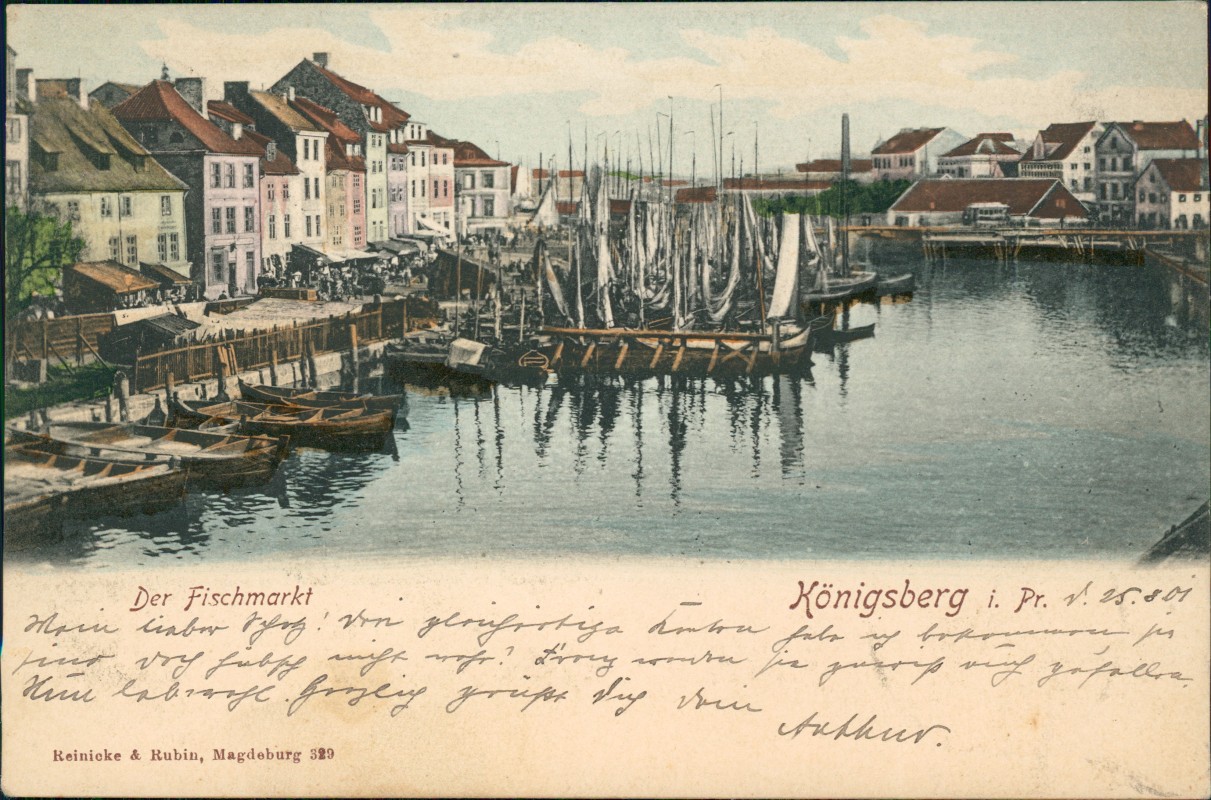 Der Fischmarkt
Königsberg i. Pr. d. 25.8.01
Mein lieber Schatz! Die gleichartige Karten habe ich bekommen sie
sind doch hübsch nicht wahr? werden sie gewiß auch gefallen.
Nun lebewohl. Herzlich grüßt Dich Dein
Arthur.
Reinicke & Rubin, Magdeburg 329